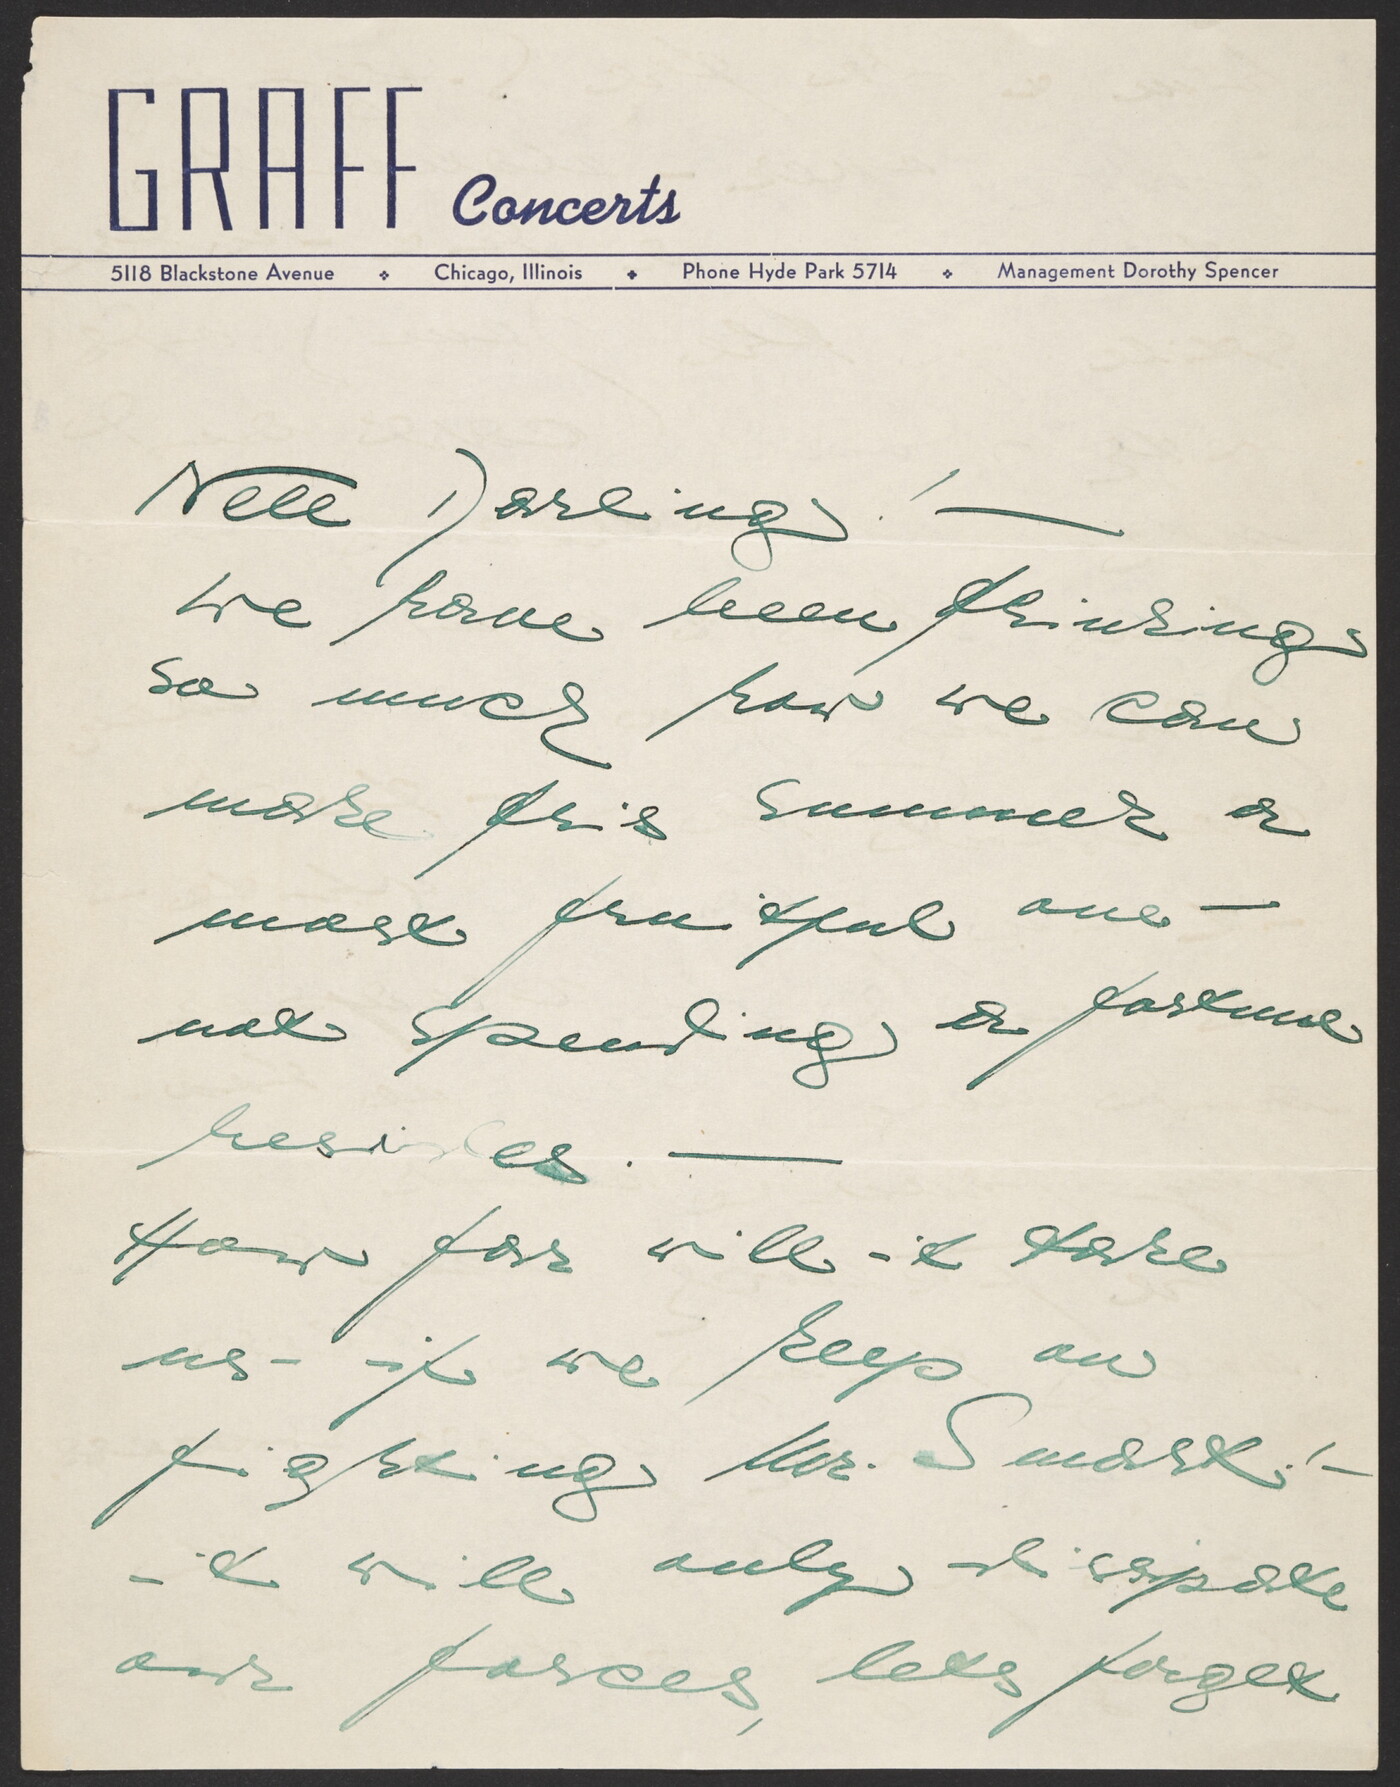 GRAFF Concerts
5118 Blackstone Avenue ❖ Chicago, Illinois ❖ Phone Hyde Park 5714 ❖ Management Dorothy Spencer
Nell Darling! —
we have been thinking
so much how we can
make this summer a
most fruitful one —
not spending a fortune
besides. —
How far will it take
us - if we keep on
fighting Mr. Smart! -
- it will only dissipate
our forces, lets forget